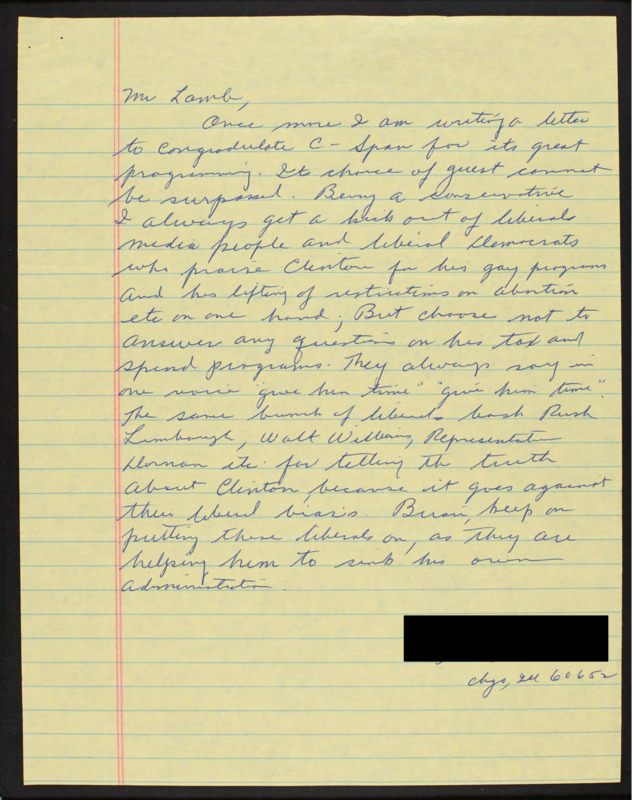 Mr Lamb,
Once more I am writing a letter
to congradulate C-Span for its great
programming. Its choice of guest cannot
be surpassed. Being a conservative
I always get a kick out of liberals
media people and liberal Democrats
who praise Clinton for his gay programs
And his lifting of restrictions on abortion
etc on one hand; But choose not to
answer any questions on his tax and
spend programs. They always say in
one voice "give him time" "give him time".
The same bunch of liberals bash Rush
Limbaugh, Walt Representative
Dornan etc. for telling the truth
About Clinton, because it goes against
their liberal biasis. Brian, keep on
putting these liberals on, as they are
helping him to sink his own
administration.
Chgo, Ill 60652